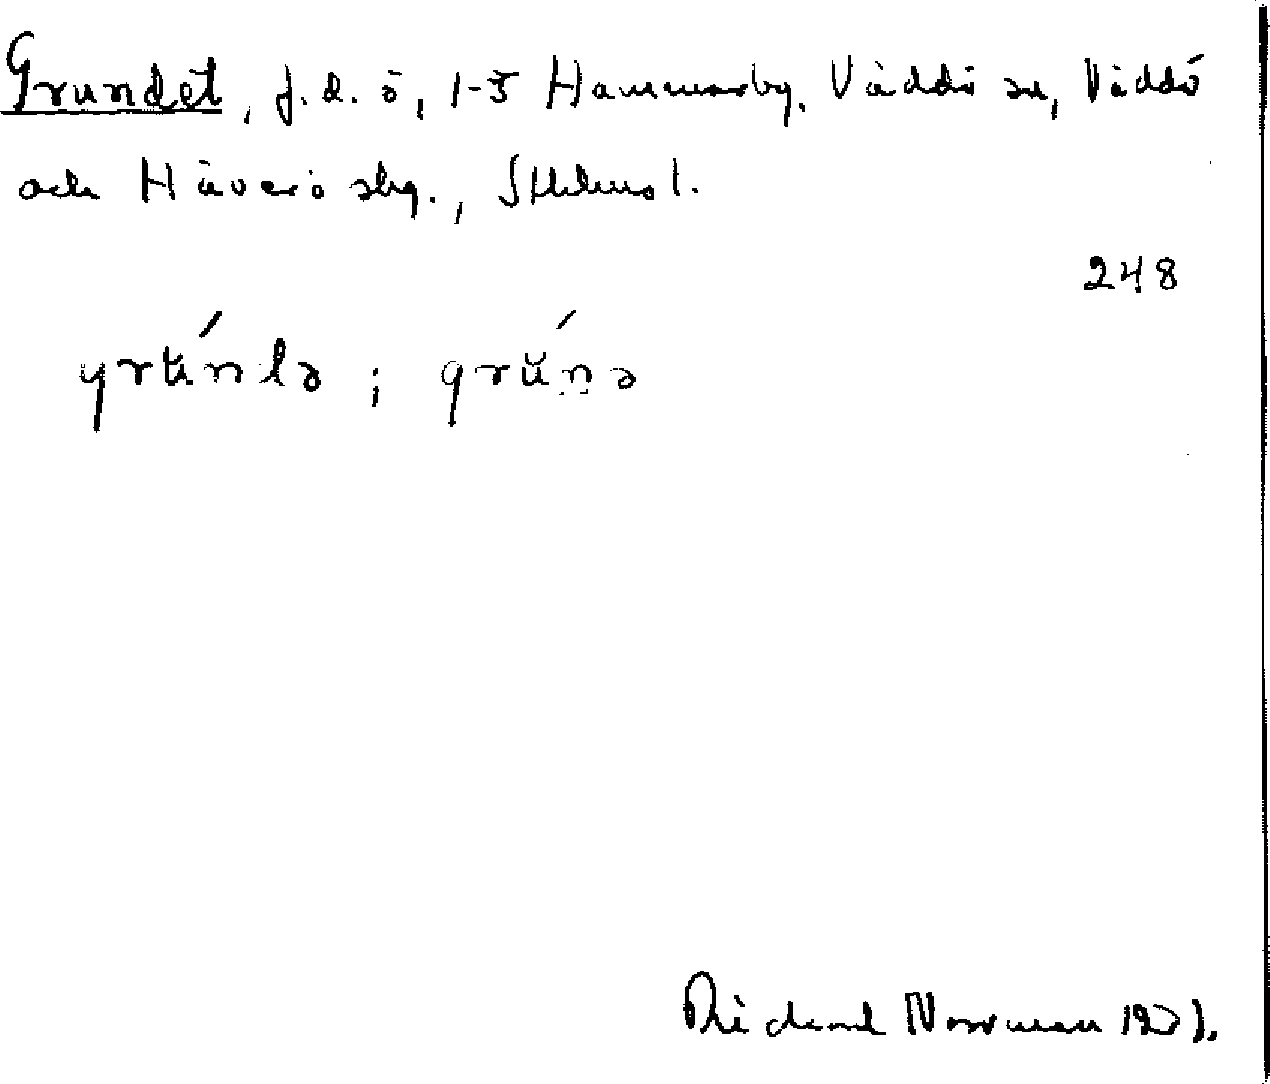 Grundet, f.d. ö, 1-5 Hammarby. Väddö sn, Väddö
och Häverö skg., Sthlms l.
248
Richard Norrman